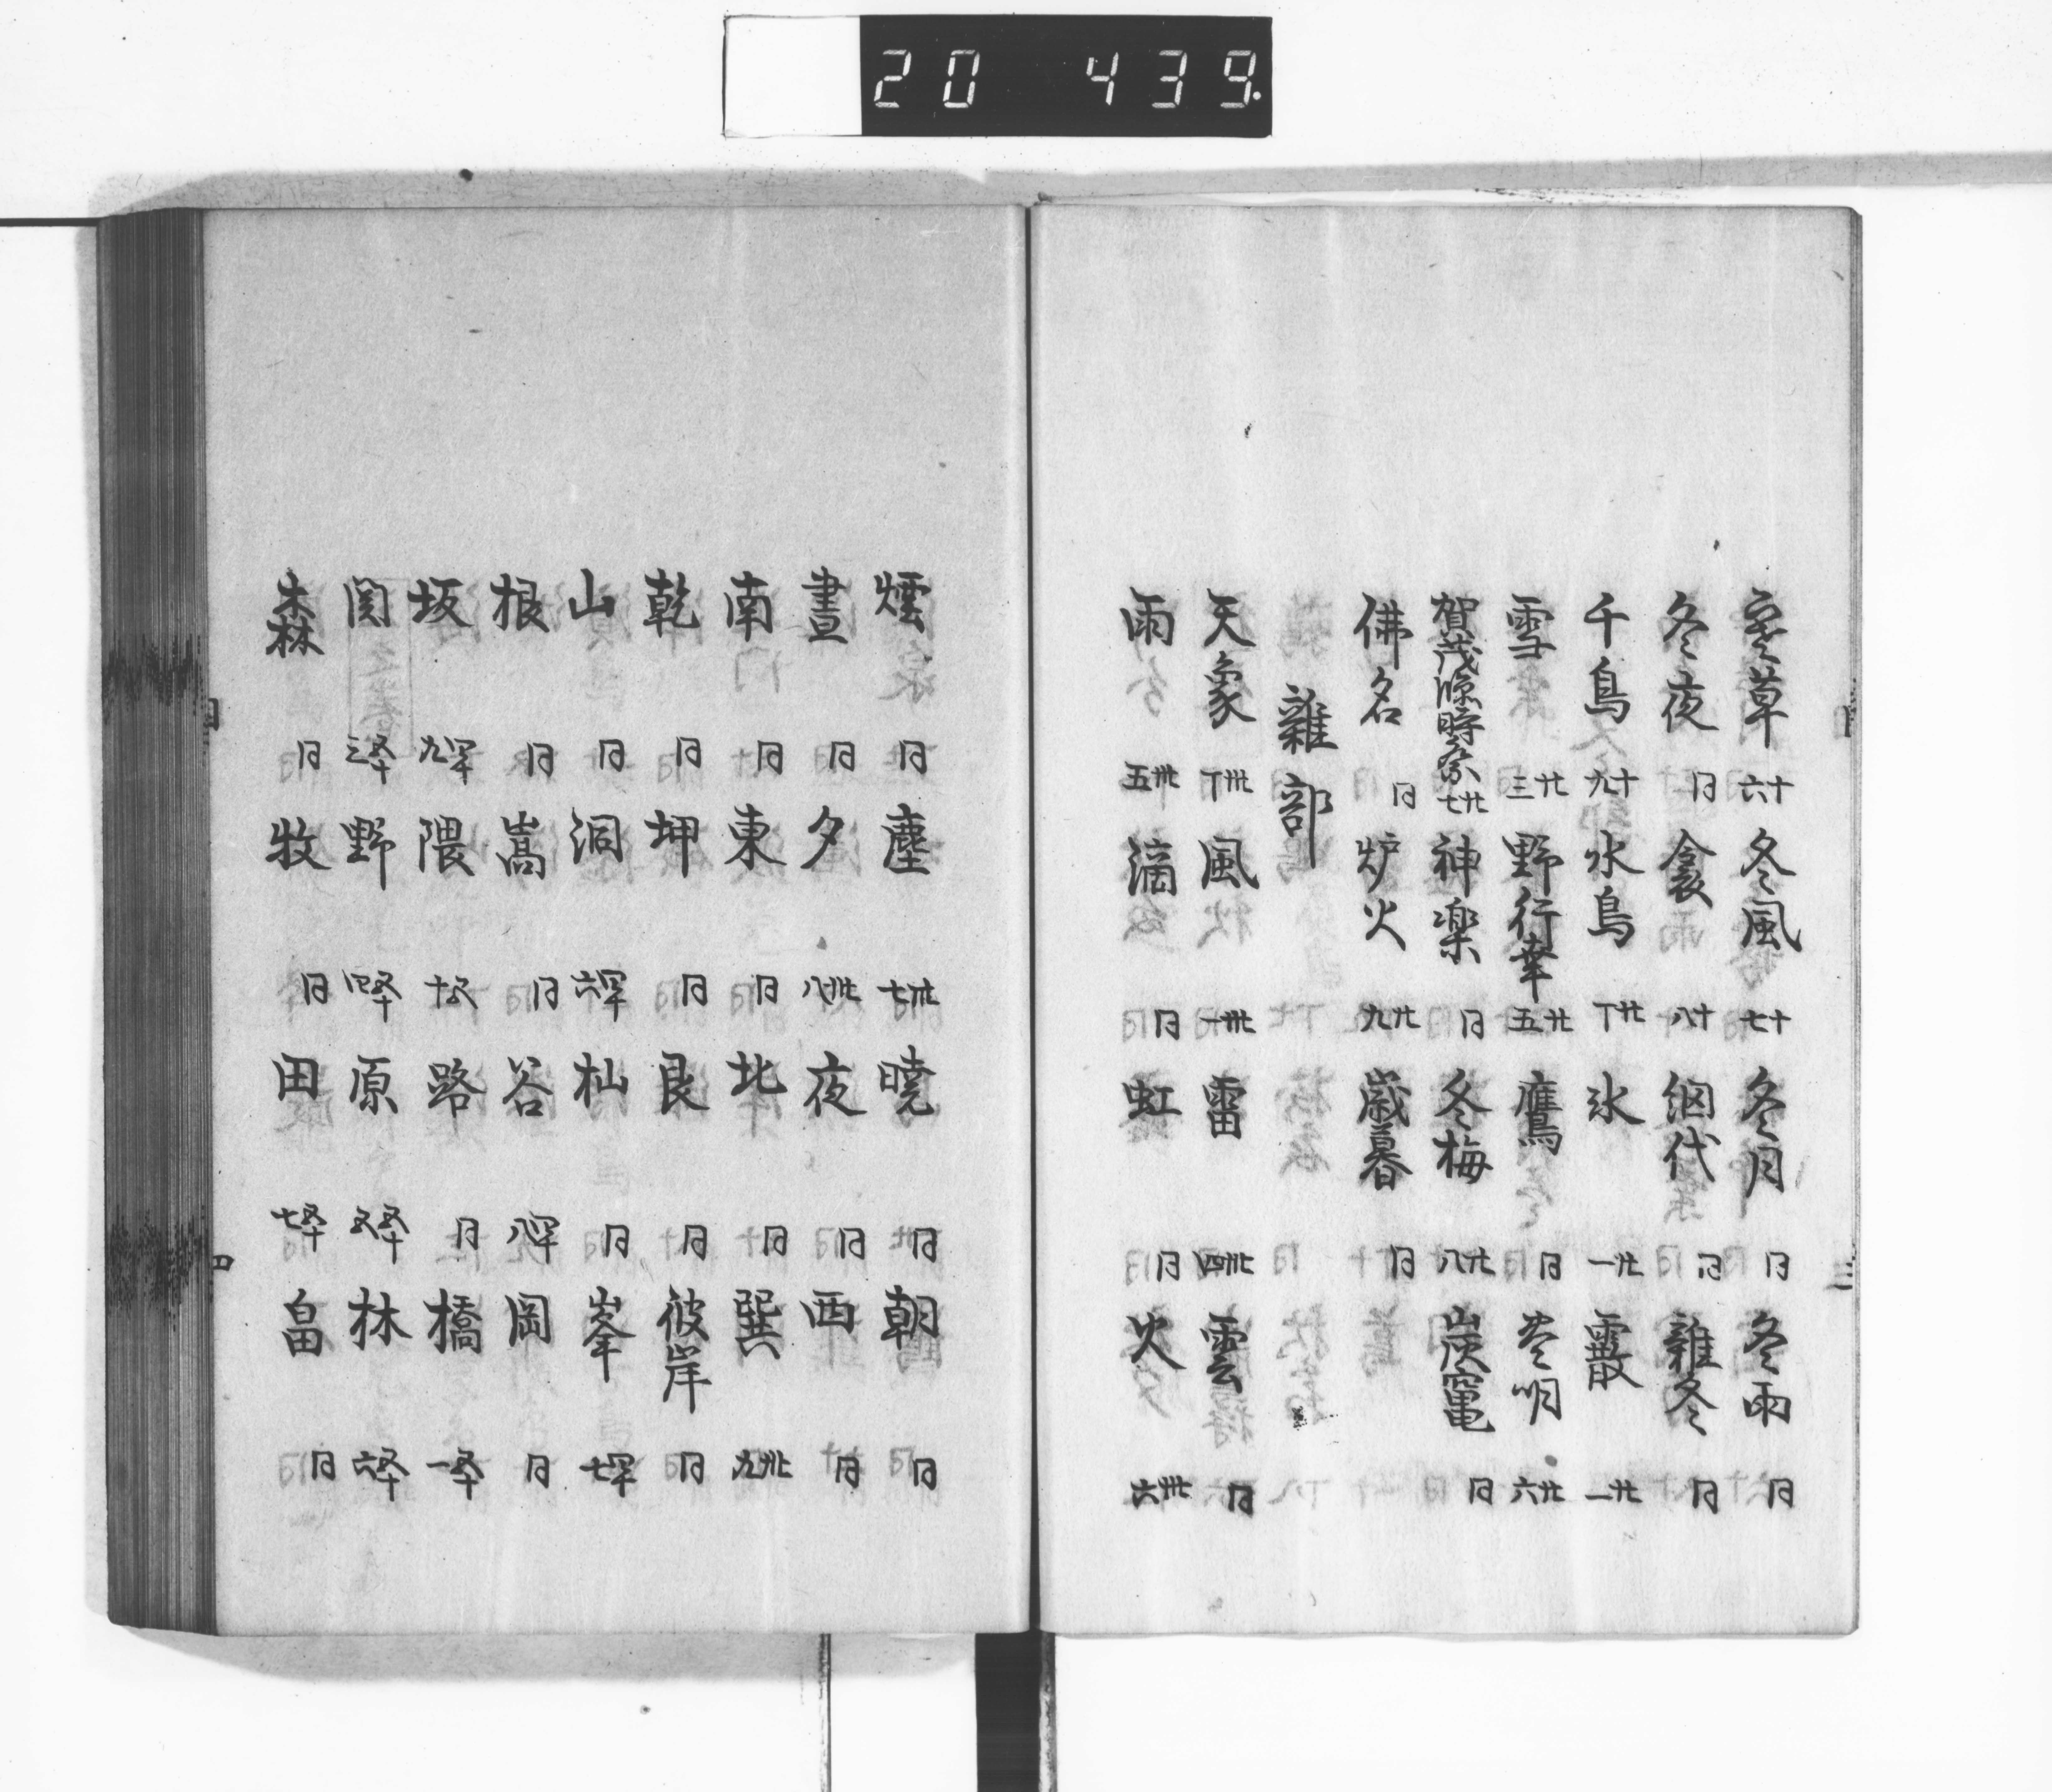 20 439.
寒草 十六 冬風 十七 冬月 同 冬雨 同
冬夜 同 衾 十八 網代 同 雜冬 同
千鳥 十九 水鳥 廿丁 氷 廿一 霰 廿一
雪 廿三 野行幸 廿五 鷹 同 豊明 廿六
賀茂臨時祭 廿七 神楽 同 冬梅 廿八 炭竃 同
佛名 同 炉火 廿九 歳暮 同
雜部
天象 卅丁 風 卅一 雷 卅四 雲 同
雨 卅五 滴 同 虹 同 火 卅六
三
煙 同 塵 卅七 暁 同 朝 同
晝 同 夕 卅八 夜 同 西 同
南 同 東 同 北 同 巽 卅九
乾 同 坤 同 艮 同 彼岸 同
山 同 洞 六 杣 同 峯 七
根 同 嵩 同 谷 八 岡 同
坂 九 隈 路 同 橋 一
関 野 四 原 林 六
森 同 牧 同 田 七 畠 同
四